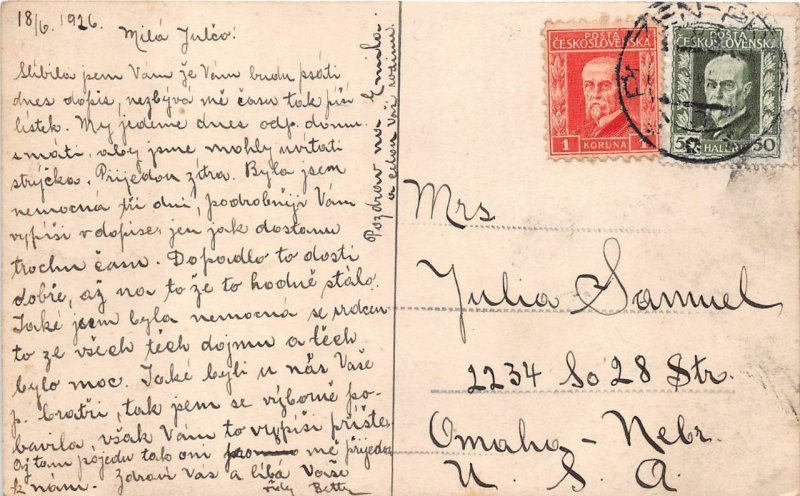 18/6. 1926.
Milá Julčo!
Slíbila jsem Vám že Vám budu psáti
dnes dopis, nezbývá mě času tak píši
lístek. My jedeme dnes odp. domu
s máti, aby jsme mohly uvítati
strýčka. Přijedou zítra. Byla jsem
nemocná tři dni, podrobněji Vám
vypíši v dopise, jen jak dostanu
trochu času. Dopadlo to dosti
dobře, až na to že to hodně stálo.
Také jsem byla nemocná se srdcem
to ze všech těch dojmu a těch
bylo moc. Také byli u nás Vaše
p. bratři, tak jsem se výborně po-
bavila, však Vám to vypíši příště.
Až tam pojedu tak oni mě přijedou
k nám. Zdraví Vás a líbá Vaše
Betty
Pozdrav na Emila
a celou Vaši rodinu
POŠTA
ČESKOSLOVENSKÁ
1 KORUNA 1
POŠTA
ČESKOSLOVENSKÁ
50 HALÉŘŮ 50
Mrs
Julia Samuel
2234 So 28 Str.
Omaha - Nebr.
U. S. A.